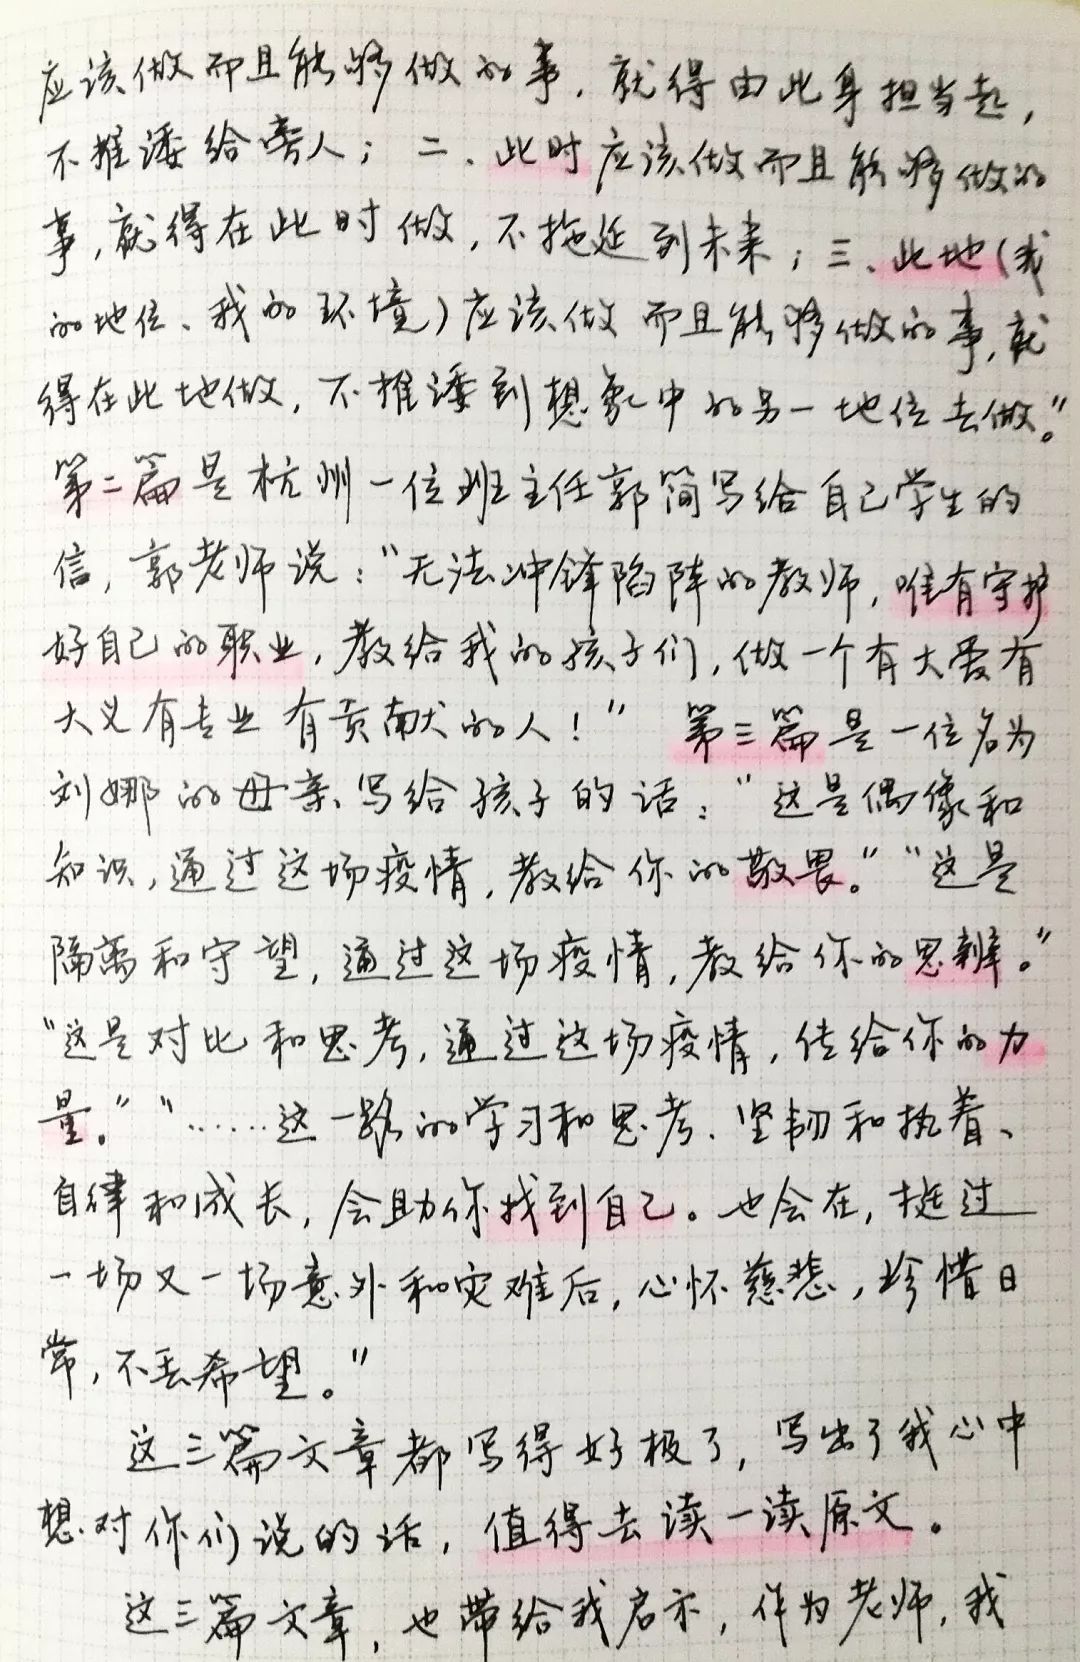 应该做而且能够做的事，就得由此身担当起，
不推诿给旁人；二、此时应该做而且能够做的
事，就得在此时做，不拖延到未来；三、此地（我
的地位、我的环境）应该做而且能够做的事，就
得在此地做，不推诿到想象中的另一地位去做。”
第二篇是杭州一位班主任郭简写给自己学生的
信，郭老师说：“无法冲锋陷阵的教师，唯有守护
好自己的职业，教给我的孩子们，做一个有大爱有
大义有专业有贡献的人！” 第三篇是一位名为
刘娜的母亲、写给孩子的话：“这是偶像和
知识，通过这场疫情，教给你的敬畏。”“这是
隔离和守望，通过这场疫情，教给你的思辨。”
“这是对比和思考，通过这场疫情，传给你的力
量。”“……这一路的学习和思考、坚韧和执着、
自律和成长，会助你找到自己。也会在，挺过
一场又一场意外和灾难后，心怀慈悲，珍惜日
常，不丢希望。”
这三篇文章都写得好极了，写出了我心中
想对你们说的话，值得去读一读原文。
这三篇文章，也带给我启示，作为老师，我